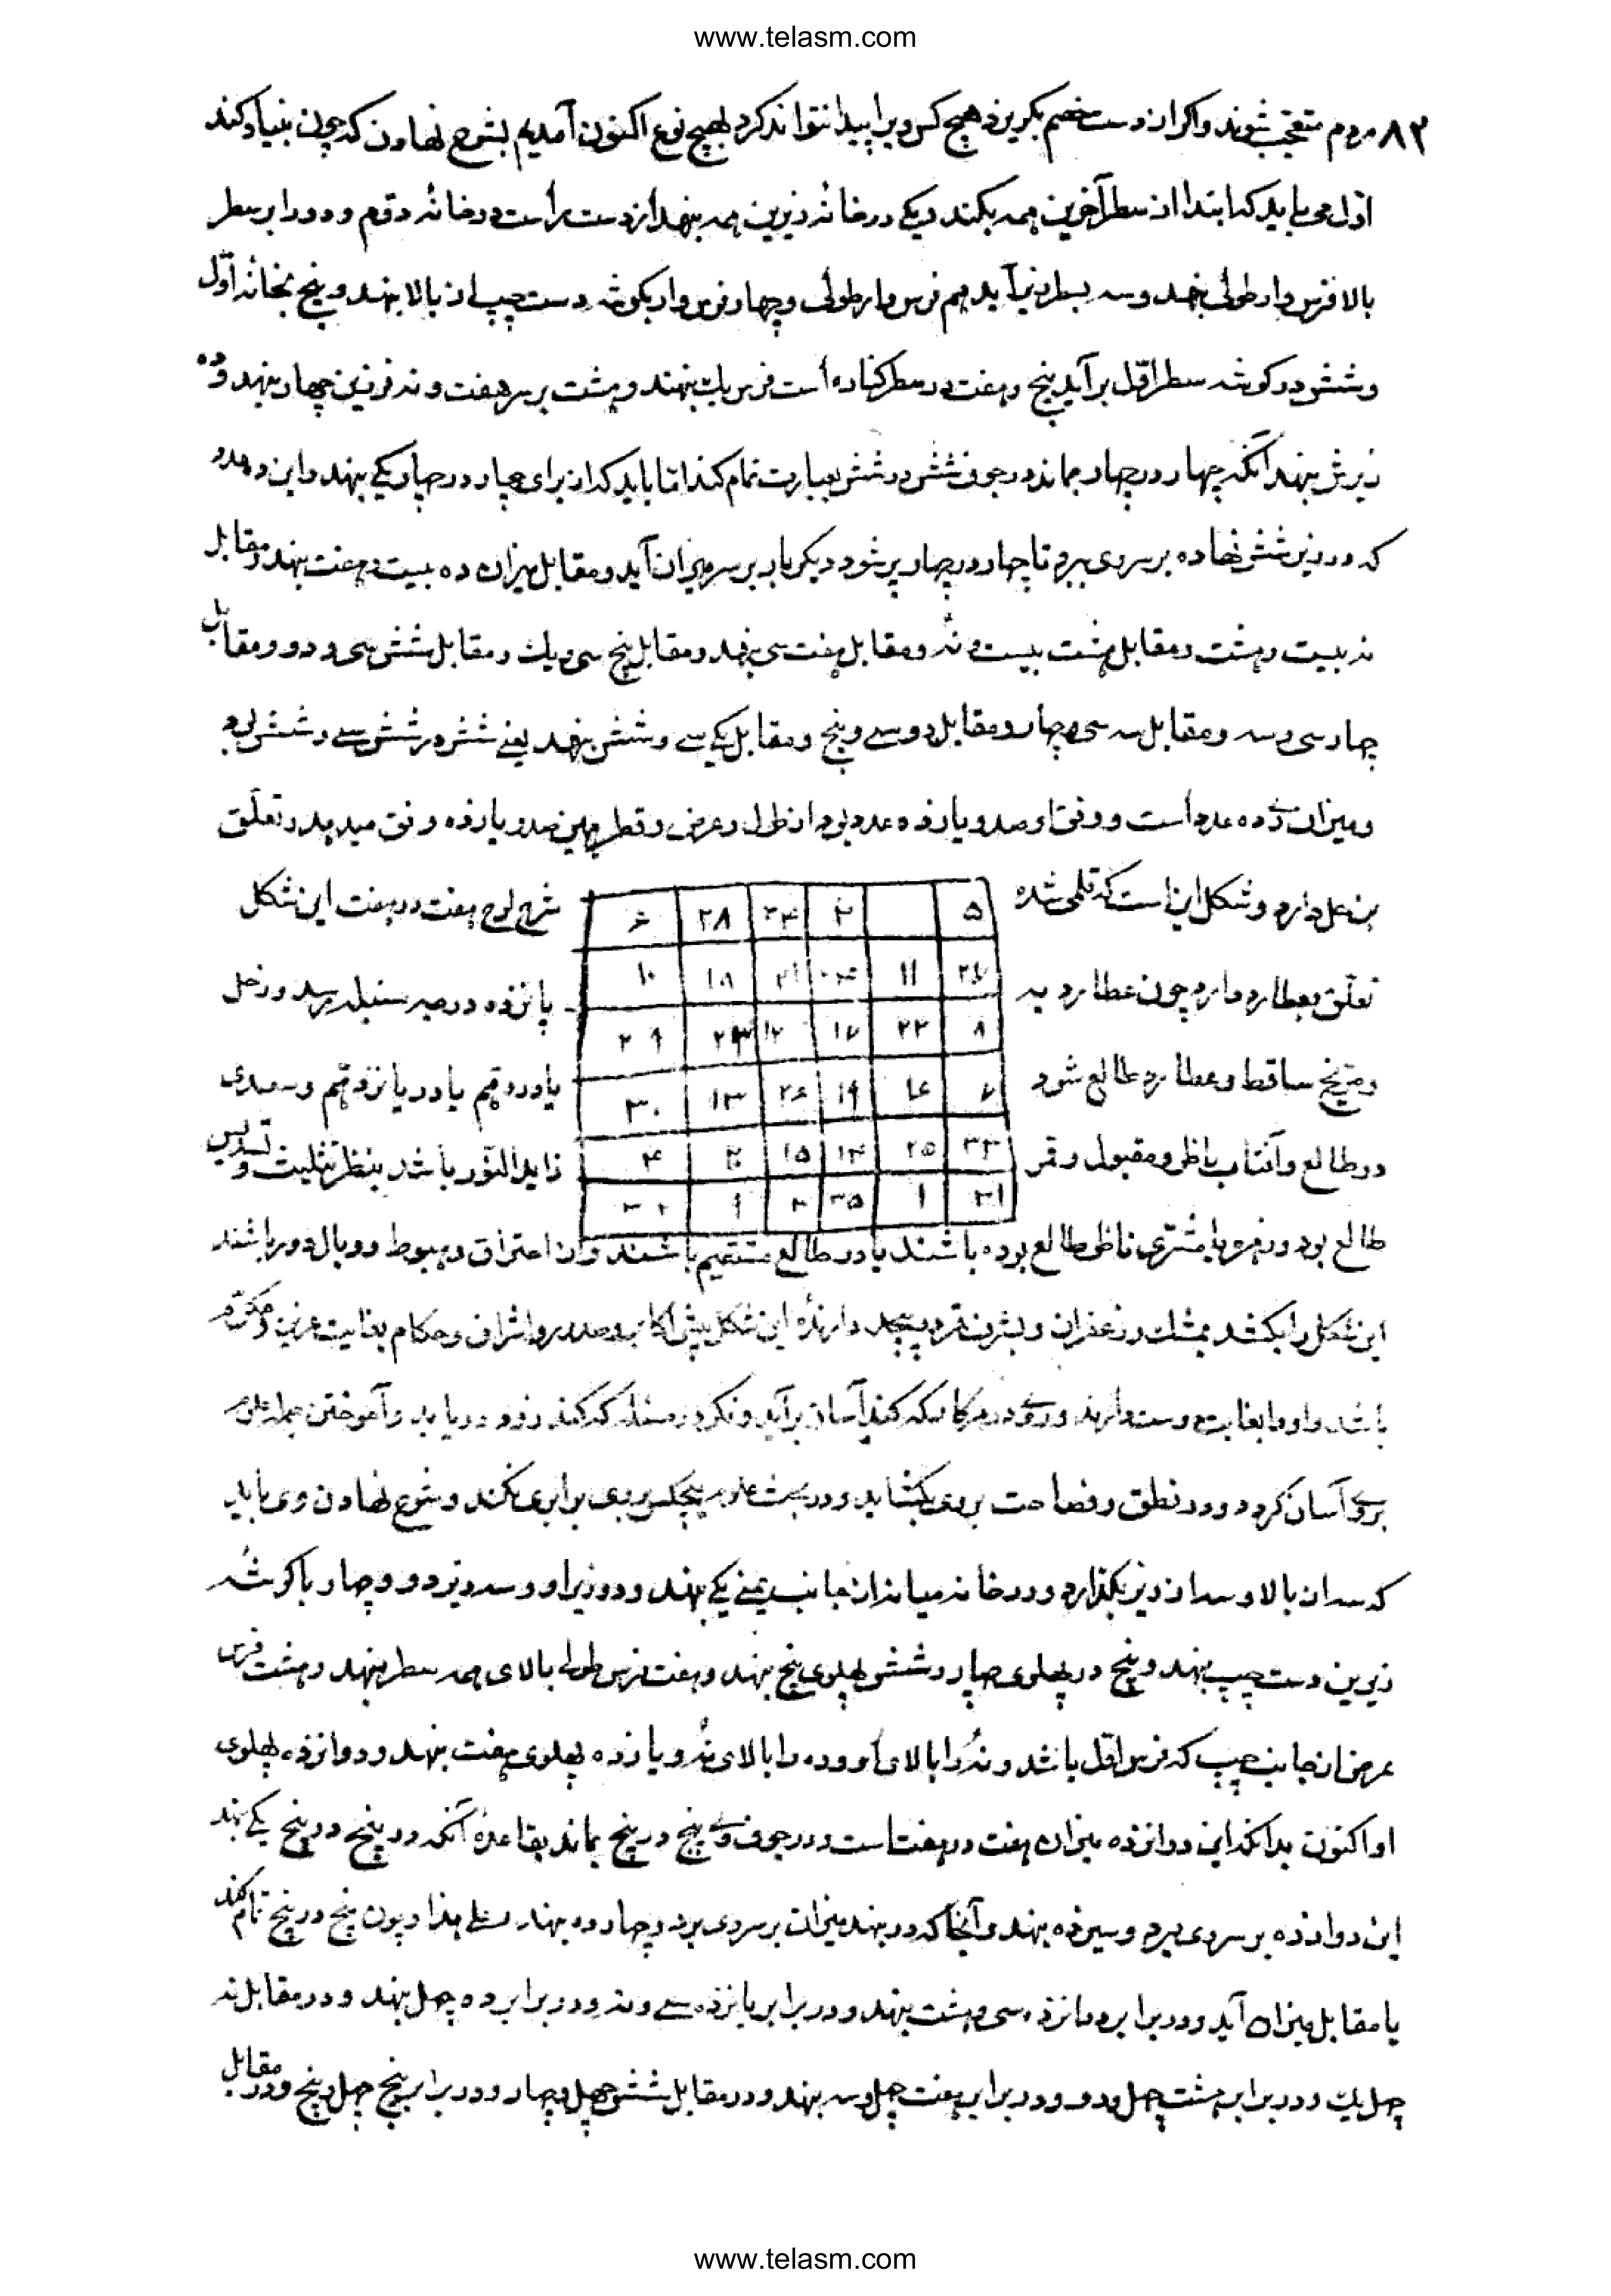 www.telasm.com
۸۲ مردم متعجب شوند و اگر از دست خصم بگریزد هیچ کس ویرا پیدا نتواند کرد بهیچ نوع اکنون آمدیم بشرح نهادن که چون بنیاد کند
اول می باید که ابتدا از سطر آخرین همه بکند و یکی در خانه زیرین همه بنهد از دست راست در خانه دوم و دو را بر سطر
بالا فرس وار طولی بنهد و سه بسطر زیر آید هم فرس وار طولی و چهار فرس وار بگوشه دست چپ از بالا بنهد و پنج بخانه اول
و شش در گوشه سطر اول برآید پنج و هفت در سطر کناره است فرس بنهند و هشت بر سر هفت و نه فرزین چهار بنهد و ده
زیرش بنهد آنگه چهار در چهار بماند در جوف شش در شش بعبارت تمام کند اما باید که از برای چهار در چهار یکی بنهد و این ده عدد
که در زیر شش نهاده بر سر وی برد تا چهار در چهار پر شود دیگر بار بر سر میزان آید و مقابل میزان ده بیست و هفت بنهد و مقابل
نه بیست و هشت و مقابل هشت بیست و نه و مقابل هفت سی بنهد و مقابل پنج سی و یک و مقابل شش سی و دو و مقابل
چهار سی و سه و مقابل سه سی و چهار و مقابل دو سی و پنج و مقابل یکی سی و شش بنهد یعنی شش در شش سی و شش بود
و میزان وی ده عدد است و وفق او صد و یازده عدد بود از طول و عرض و قطر همین صد و یازده وفق میدهد و تعلق
دارد و شکل این است که قلمی شده
شرح لوح هفت در هفت این شکل
۵ ۲ ۳۴ ۲۸ ۶
۱۱ ۲۱ ۱۸ ۱۰
۸ ۲۲ ۱۷ ۱۲ ۲۳ ۲۹
۷ ۱۶ ۱۹ ۲۶ ۱۳ ۳۰
۳۳ ۲۵ ۱۴ ۱۵ ۴
۳۱ ۱ ۳۵ ۳ ۹ ۳۲
تعلق بعطارد دارد چون عطارد به
پانزده درجه سنبله رسد و زحل
و مریخ ساقط و عطارد طالع شود
یا در دهم یا در یازدهم و سعدی
در طالع و آفتاب ناظر و مقبول و قمر
زاید النور باشد بنظر تثلیث و تسدیس
طالع بود و زهره یا مشتری ناظر طالع بوده باشند یا در طالع مستقیم باشند و از احتراق و هبوط و وبال دور باشند
این شکل را بکشد بمشک و زعفران و بشرف قمر بپیچد دارنده این شکل پیش اکابر و صدور و اشراف و حکام بغایت عزیز و مکرم
باشد و او را بغایت دوست دارند و وی در هر کاری که کند آسان برآید و فکر در مسئله که کند زود دریابد و آموختن جمله علوم
بر وی آسان گردد و در نطق و فصاحت بر وی بگشاید و در بحث علوم هیچکس با وی برابری نکند و شرح نهادن وی باید
که سه از بالا و سه از زیر بگذارد و در خانه میانه از جانب یمنی یکی بنهد و دو زیر او و سه در زیر دو و چهار با گوشه
زیرین دست چپ بنهد و پنج در پهلوی چهار و شش پهلوی پنج بنهد و هفت فرس طولی بالای همه سطر بنهد و هشت فرس
عرض از جانب چپ که فرس اول باشد و نه را بالای او و ده را بالای نه و یازده پهلوی هفت بنهد و دوازده پهلوی
او اکنون بدانکه این دوازده میزان هفت در هفتاست و در جوف وی پنج در پنج بماند بقاعده آنکه در پنج در پنج یکی بنهد
این دوازده بر سر وی برد و سیزده بنهد و آنجا که دو بنهد میزان بر سر وی برد و چهارده بنهد علی هذا و چون پنج در پنج تمام کند
با مقابل میزان آید و در برابر دوازده سی و هشت بنهد و در برابر یازده سی و نه و در برابر ده چهل بنهد و در مقابل نه
چهل یک و در برابر هشت چهل و دو و در برابر هفت چهل و سه بنهد و در مقابل شش چهل و چهار و در برابر پنج چهل و پنج و در مقابل
www.telasm.com